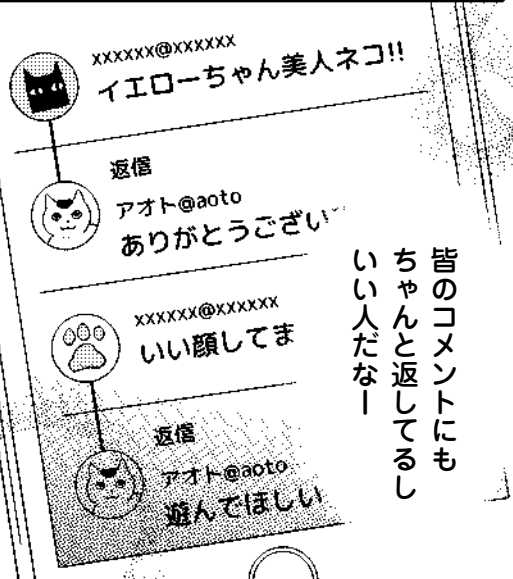 xxxxxx@xxxxxx
イエローちゃん美人ネコ!!
返信
アオト@aoto
ありがとうござい
xxxxxx@xxxxxx
いい顔してま
返信
アオト@aoto
遊んでほしい
皆のコメントにも
ちゃんと返してるし
いい人だなー